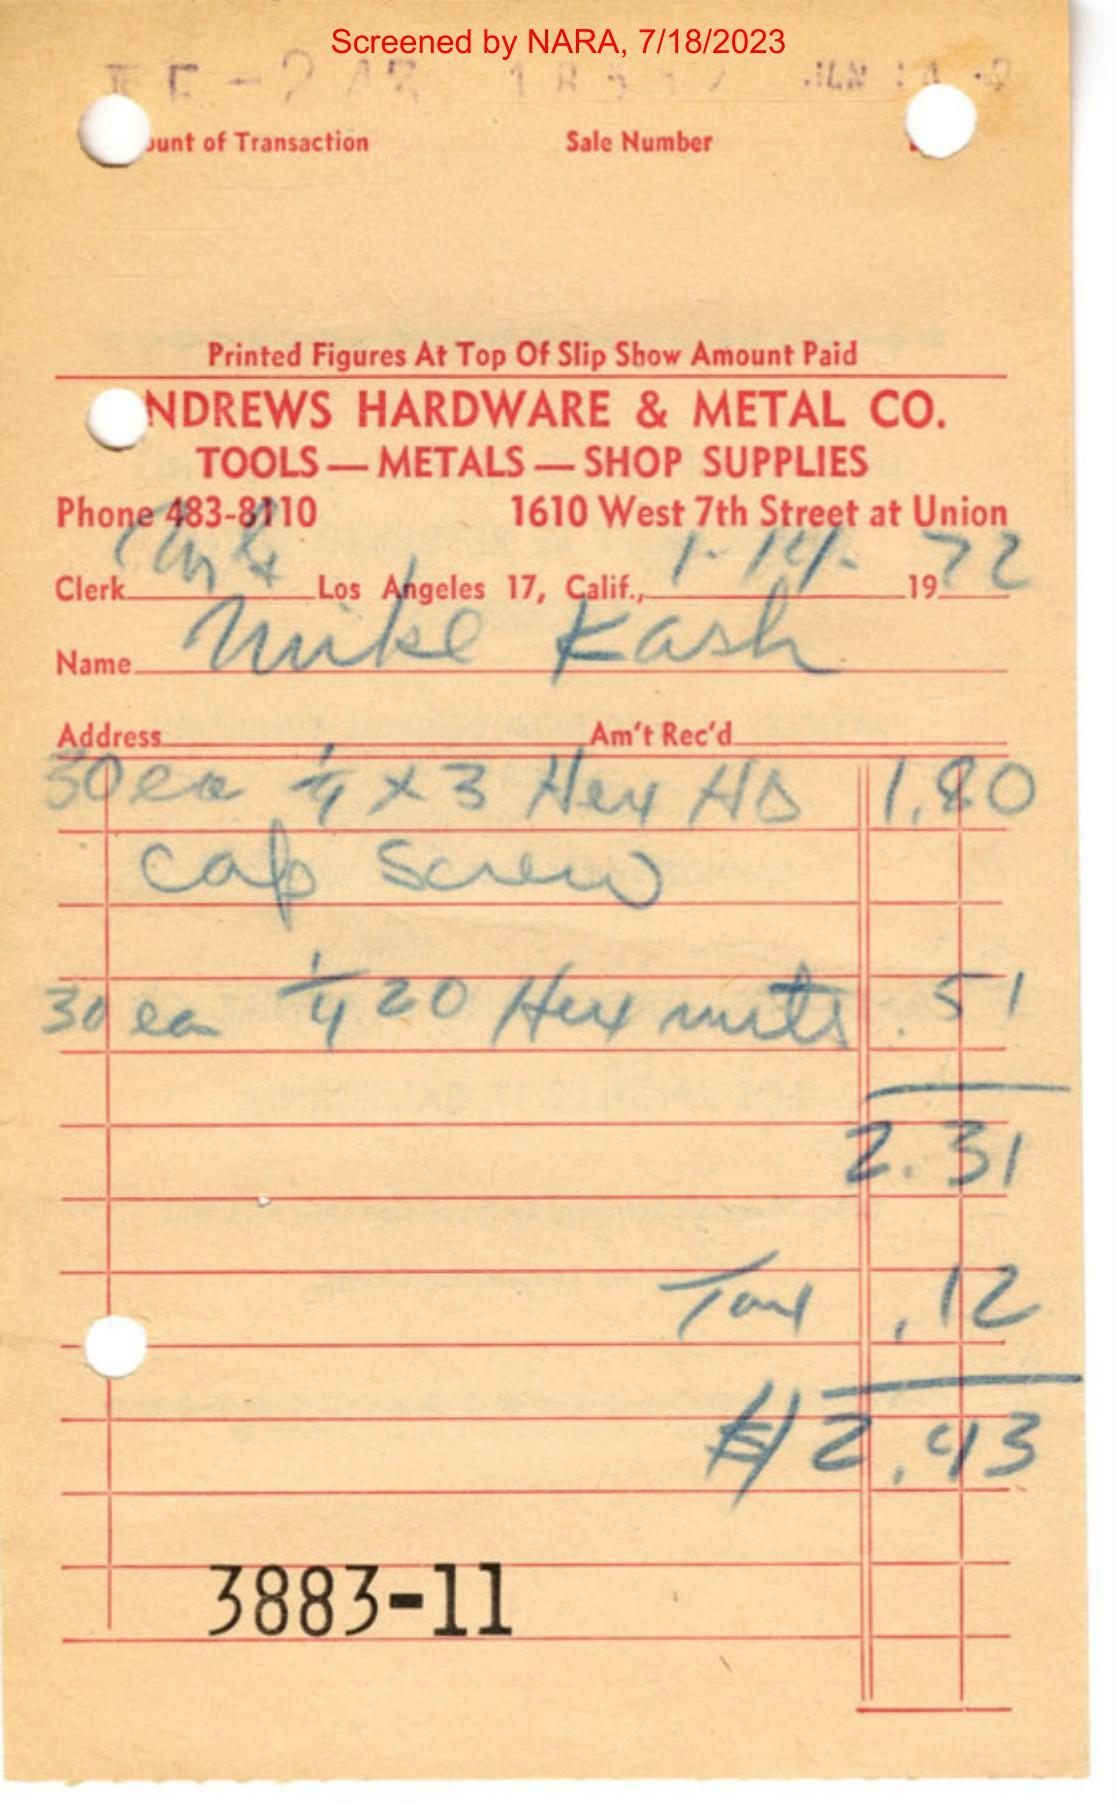 Screened by NARA, 7/18/2023
ount of Transaction Sale Number
Printed Figures At Top Of Slip Show Amount Paid
NDREWS HARDWARE & METAL CO.
TOOLS — METALS — SHOP SUPPLIES
Phone 483-8110 1610 West 7th Street at Union
Clerk Los Angeles 17, Calif., 1-14-1972
Name Mike Kash
Address Am't Rec'd
30 ea 1/4 x 3 Hex HD 1.80
cap screw
30 ea 1/4 20 Hex nuts .51
2.31
Tax .12
$2.43
3883-11